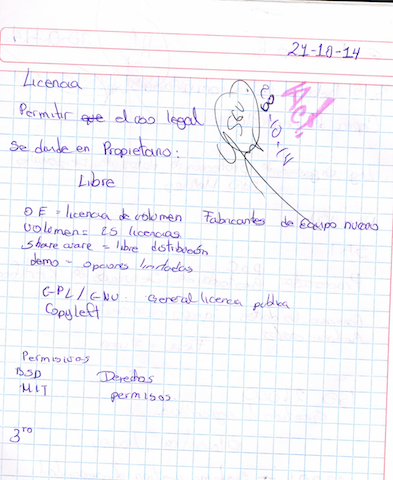 21-10-14
Licencia
Permitir que el uso legal
Se divide en Propietario:
Libre
OE = licencia de volumen Fabricantes de equipo nuevo
volumen = 25 licencias
shareware = libre distribución
demo - opciones limitadas
GPL / GNU General licencia publica
Copyleft
Permisivas
BSD Derechos
MIT permisos
3ro